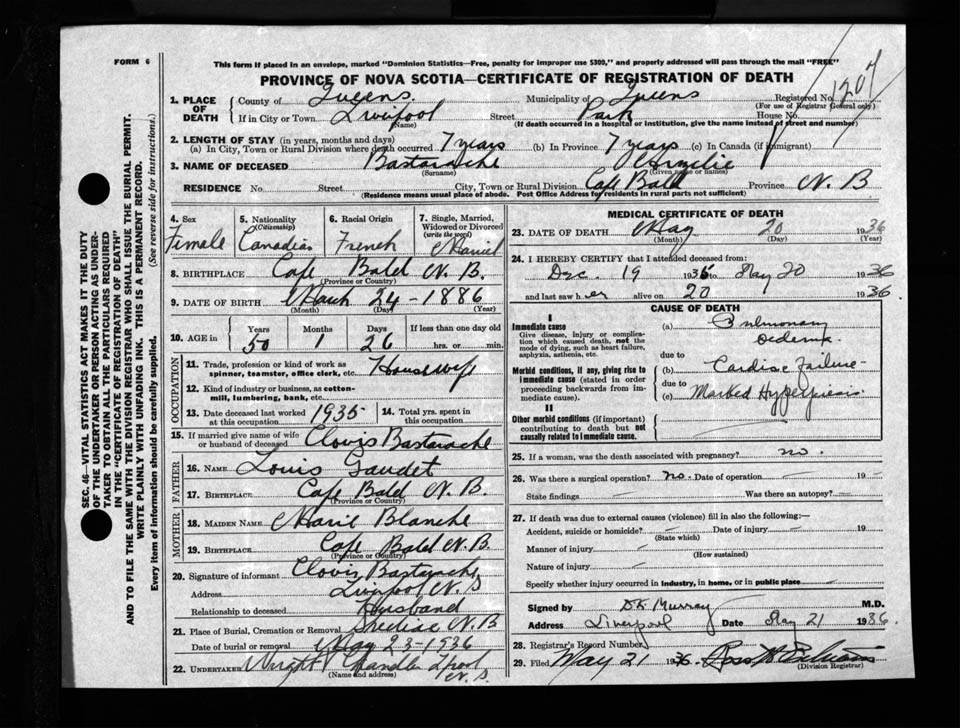 FORM 6
This form if placed in an envelope, marked "Dominion Statistics—Free, penalty for improper use $300," and properly addressed will pass through the mail "FREE"
PROVINCE OF NOVA SCOTIA—CERTIFICATE OF REGISTRATION OF DEATH
1. PLACE OF DEATH { County of Queens Municipality of Queens Registered No. 1207
(For use of Registrar General only)
If in City or Town Liverpool (Name) Street Park House No.
(If death occurred in a hospital or institution, give the name instead of street and number)
2. LENGTH OF STAY (in years, months and days)
(a) In City, Town or Rural Division where death occurred 7 years (b) In Province 7 years (c) In Canada (if immigrant)
3. NAME OF DECEASED Bastarache (Surname) (Given name or names)
RESIDENCE No. Street City, Town or Rural Division Cape Bald Province N. B
(Residence means usual place of abode. Post Office Address for rural parts not sufficient)
4. Sex Female
5. Nationality (Citizenship) Canadian
6. Racial Origin French
7. Single, Married, Widowed or Divorced (write the word) Married
8. BIRTHPLACE Cape Bald N. B. (Province or Country)
9. DATE OF BIRTH March 24 - 1886 (Month) (Day) (Year)
10. AGE in Years 50 Months 1 Days 26 If less than one day old hrs. or min.
OCCUPATION
11. Trade, profession or kind of work as spinner, teamster, office clerk, etc. Housewife
12. Kind of industry or business, as cotton-mill, lumbering, bank, etc.
13. Date deceased last worked at this occupation 1935 14. Total yrs. spent in this occupation
15. If married give name of wife or husband of deceased Clovis Bastarache
FATHER
16. NAME Louis Gaudet
17. BIRTHPLACE Cape Bald N. B. (Province or Country)
MOTHER
18. MAIDEN NAME Marie Blanche
19. BIRTHPLACE Cape Bald N. B. (Province or Country)
20. Signature of informant Clovis Bastarache
Address Liverpool N. S
Relationship to deceased Husband
21. Place of Burial, Cremation or Removal Shediac N. B
Date of burial or removal May 23 - 1936
22. UNDERTAKER Wright Chandler L'pool N. S. (Name and address)
MEDICAL CERTIFICATE OF DEATH
23. DATE OF DEATH May 20 1936 (Month) (Day) (Year)
24. I HEREBY CERTIFY that I attended deceased from:
Dec. 19 1935 to May 20 1936
and last saw her alive on 20 1936.
CAUSE OF DEATH
I
Immediate cause
Give disease, injury or complication which caused death, not the mode of dying, such as heart failure, asphyxia, asthenia, etc.
(a) Pulmonary oedema
due to
Morbid conditions, if any, giving rise to immediate cause (stated in order proceeding backwards from immediate cause).
(b) Cardiac failure
due to
(c) Marked
II
Other morbid conditions (if important) contributing to death but not causally related to immediate cause.
25. If a woman, was the death associated with pregnancy? no.
26. Was there a surgical operation? no. Date of operation — 19 —
State findings — Was there an autopsy? —
27. If death was due to external causes (violence) fill in also the following:—
Accident, suicide or homicide? — (State which) Date of injury — 19
Manner of injury — (How sustained)
Nature of injury —
Specify whether injury occurred in industry, in home, or in public place —
Signed by D K Murray M.D.
Address Liverpool Date May 21 1936.
28. Registrar's Record Number
29. Filed May 21 1936. (Division Registrar)
SEC. 46—VITAL STATISTICS ACT MAKES IT THE DUTY
OF THE UNDERTAKER OR PERSON ACTING AS UNDER-
TAKER TO OBTAIN ALL THE PARTICULARS REQUIRED
IN THE "CERTIFICATE OF REGISTRATION OF DEATH"
AND TO FILE THE SAME WITH THE DIVISION REGISTRAR WHO SHALL ISSUE THE BURIAL PERMIT.
WRITE PLAINLY WITH UNFADING INK. THIS IS A PERMANENT RECORD.
Every item of information should be carefully supplied. (See reverse side for instructions.)